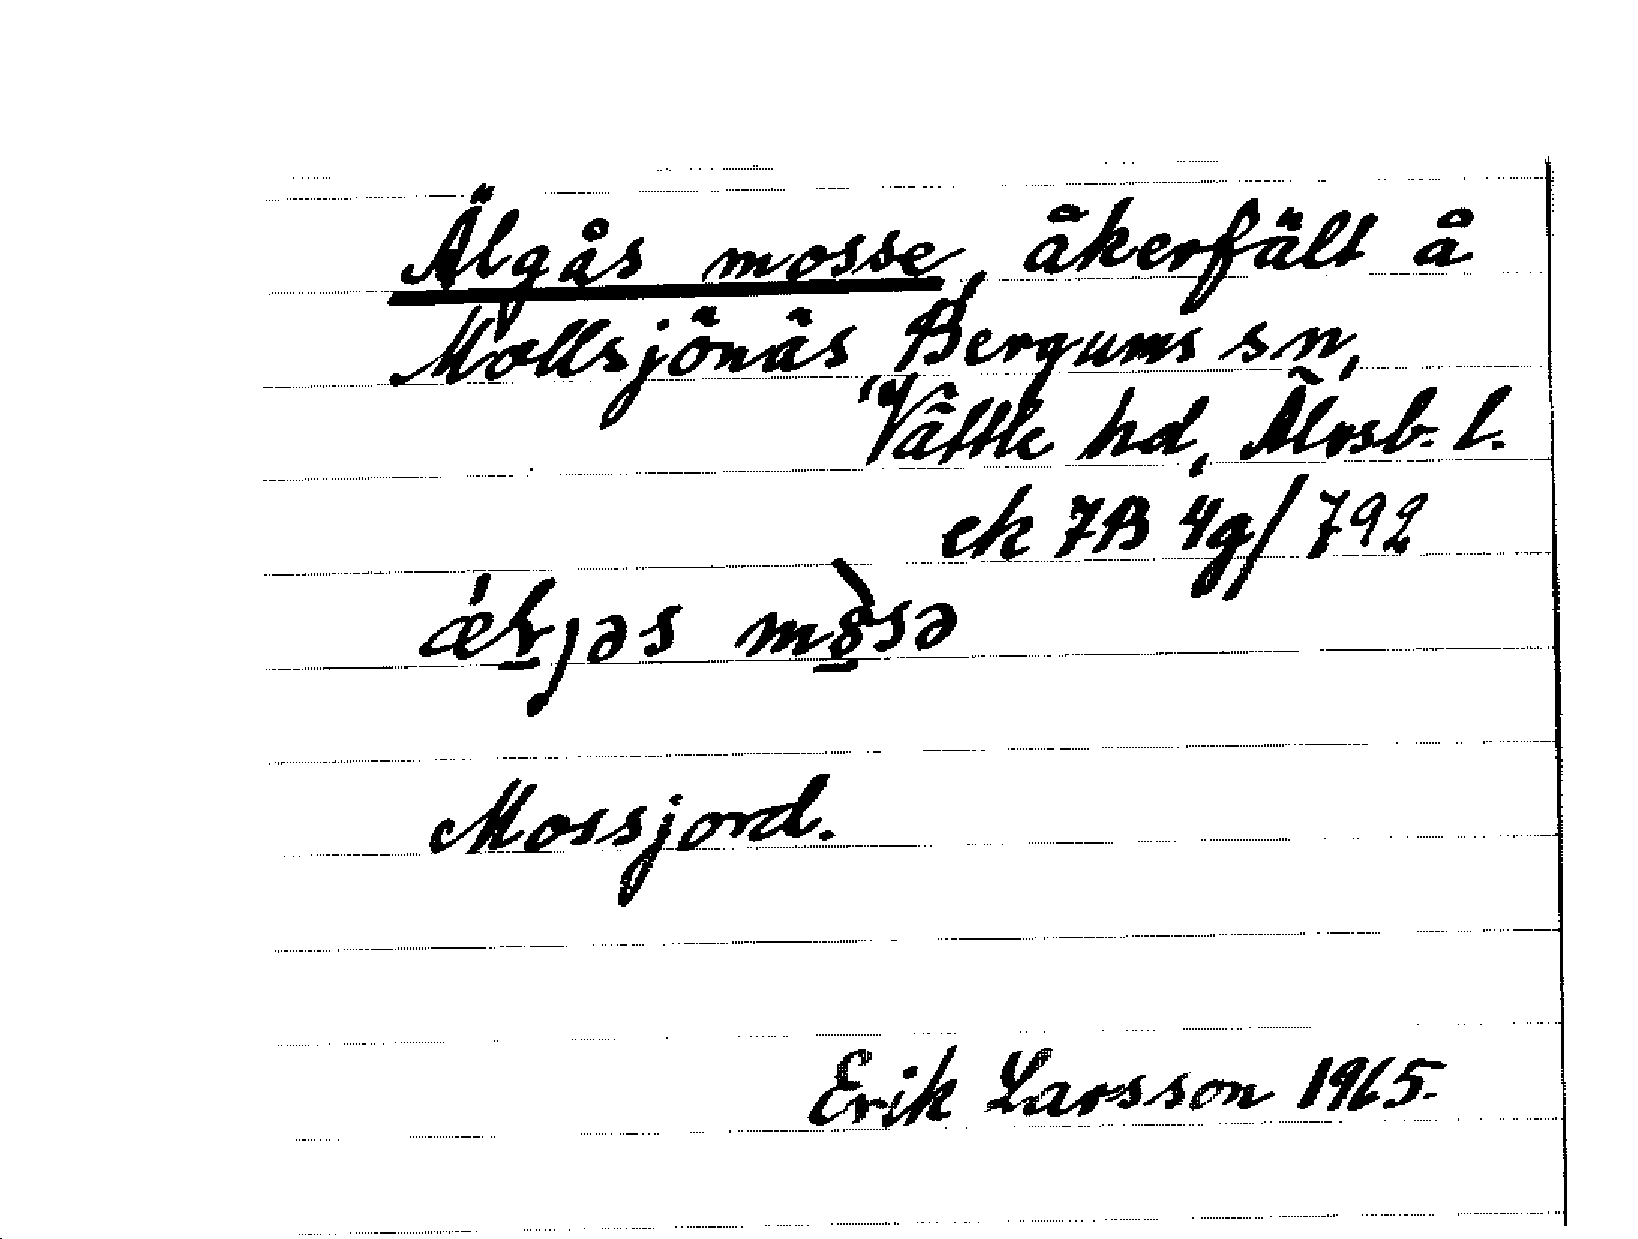 Älgås mosse, åkerfält å
Mollsjönäs Bergums sn,
Vättle hd, Älvsb. l.
ek 7B 4g/792
mòsə
Mossjord.
Erik Larsson 1965.